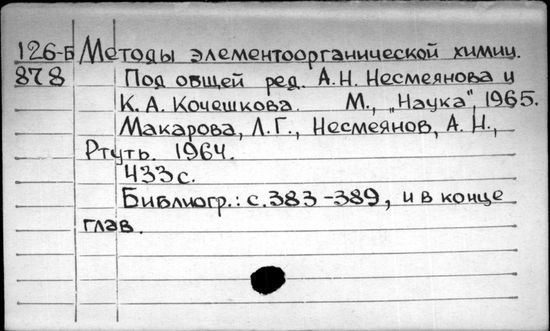 126-Б Методы элементоорганической химии.
878 Под общей ред. А.Н. Несмеянова и
К.А. Кочешкова. М., „Наука", 1965.
Макарова, Л.Г., Несмеянов, А.Н.,
Ртуть. 1964.
433 с.
Библиогр.: с. 383-389, и в конце
глав.